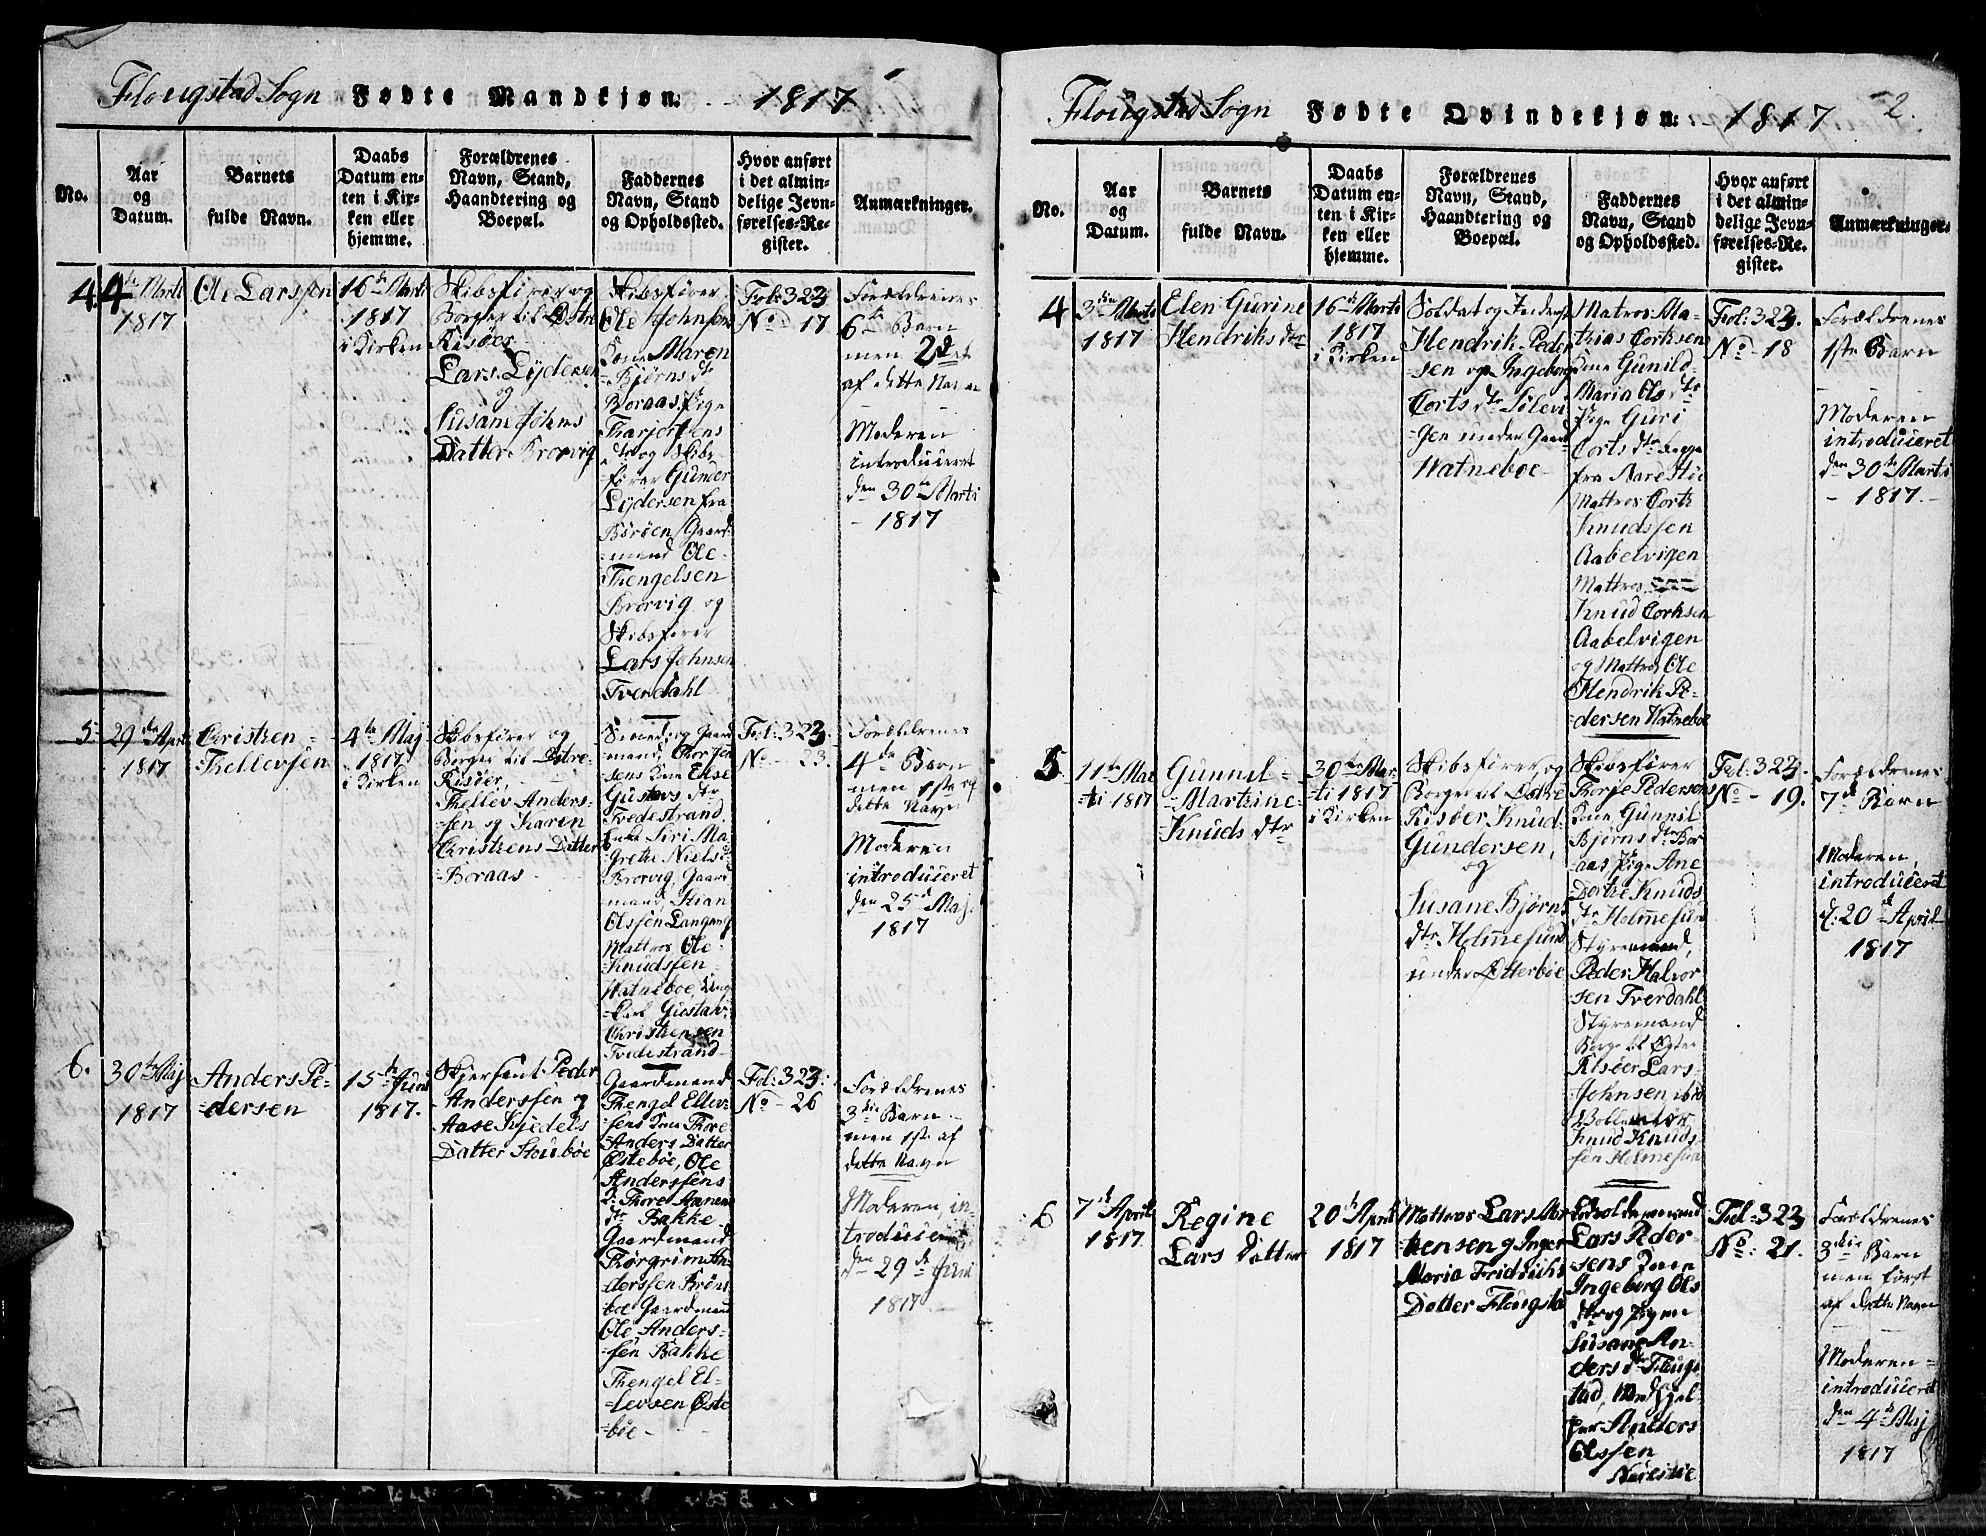 Flougstad Sogn Fødte Mandkjøn. 1817
No.
Aar
og
Datum.
Barnets
fulde Navn.
Daabs
Datum en-
ten i Kir-
ken eller
hjemme.
Forældrenes
Navn, Stand,
Haandtering og
Boepæl.
Faddernes
Navn, Stand
og Opholdssted.
Hvor anført
i det almin-
delige Jevn-
førelses-Re-
gister.
Anmærkninger.
4.
4de Marti
1817
Ole Larssen
16de Marti
1817
i Kirken
Skibsfører og
Borger til Østre
Risøer
Lars Lydersen
og
Susan Johns
Datter Brorvig
Skibsfører
Ole Johnsens
Kone Maren
Bjørns dtr
Boraas, Pige
Tharjer Jens
dtr og Skibs
fører Gunder
Lydersen fra
Børøen, Gaard-
mand Ole
Thengelsen
Brorvig og
Skibsfører
Lars Johnsen
Tverdahl
Fol: 323
No 17
Forældrenes
6te Barn
men 2det
af dette Navn
Moderen
introduceret
den 30te Marti
1817
5
29de April
1817
Christen
Thellevsen
4de Maj
1817
i Kirken
Skibsfører og
Borger til Østre
Risøer,
Thellev Anders-
sen og Karen
Christens Datter
Boraas
Smed og Gaard
mand Thor Jen
sens Kone Else
Gustavs dtr
Tvedestrand
Enke Siri Ma-
grethe Niels d
Brorvig, Gaard
mand Stian
Olssen Langang
Mattros Ole
Knudssen
Watneboe, Ung-
karl Gustav
Christensen
Tvedestrand
Fol: 323.
No 23.
Forældrenes
4de Barn
men 1ste af
dette Navn
Moderen
introduceret
den 25de Maj
1817
6.
30te Maj
1817
Anders Pe-
dersen
15de Juni
1817.
Skjersant Peder
Anderssen og
Aase Kjedels
Datter Stuebøe
Gaardmand
Thengel Ellev-
sens Kone Thore
Anders Datter
Østebøe, Ole
Anderssens
K: Thore Annen
dtr Bakke
Gaardmand
Thorgrim An-
derssen Brøns
boe Gaardmand
Ole Anders-
sen Bakke
Thengel El-
levsen Øste
bøe
Fol: 323:
No 26
Forældrenes
3die Barn
men 1ste af
dette Navn
Moderen in-
troduceret
den 29de Juni
1817.
2.
Flougstad Sogn Fødte Qvindekjøn. 1817
No.
Aar
og
Datum.
Barnets
fulde Navn.
Daabs
Datum en-
ten i Kir-
ken eller
hjemme.
Forældrenes
Navn, Stand,
Haandtering og
Boepæl.
Faddernes
Navn, Stand
og Opholdssted.
Hvor anført
i det almin-
delige Jevn-
førelses-Re-
gister.
Anmærkninger.
4
3die Marti
1817
Elen Gurine
Hendriks dtr
16de Marti
1817
i Kirken
Soldat og Inderst
Hendrik Peder
sen og Ingeborg
Corts dtr Sølevi
gen under Gaard
Watneboe
Matros Ma-
thias Corksen
Kone Gunild
Maria Ols dtr
Pige Guri
Corts dtr
fra Aare
Mattros Cort
Knudssen
Aabelvigen
Mattros
Knud Corksen
Aabelvigen
og Mattros Ole
Hendrik Pe-
dersen Watneboe
Fol: 323.
No 18
Forældrenes
1ste Barn
Moderen
introduceret
den 30te Marti
1817.
5.
11te Mar
ti 1817
Gunnil
Martine
Knuds dtr
30te Mar
ti 1817
i Kirken
Skibsfører og
Borger til Østre
Risøer Knud
Gundersen,
og
Susane Bjørns
dtr Holmesund
under Otterbøe
Skibsfører
Thorje Pedersens
Kone Gunnil
Bjørns dtr Bor
aas Pige Ane
Dorthe Knuds
dtr Holmesund
Styremand
Peder Halvor
sen Tverdahl
Styremand
Borger til Østre
Risøer Lars
Johnsen ibid
Knud Knuds-
sen Holmesund
Fol: 323.
No - 19.
Forældrenes
7de Barn
Moderen
introduceret
d: 20de April
1817
6
7de April
1817
Regine
Lars Datter
20de April
1817
Mattros Lars Mor
tensen og Inger
Maria Fridrichs
Datter Flougstad
Lodsoldermand
Lars Peder-
sens Kone
Ingeborg Ols
dtr og Pigen
Susane An-
ders dtr Floug
stad, Medhjel-
per Anders
Olssen
Fol: 323
No: 21.
Forældrenes
3die Barn
men først
af dette Navn
Moderen
introduceret
den 4de Maj
1817